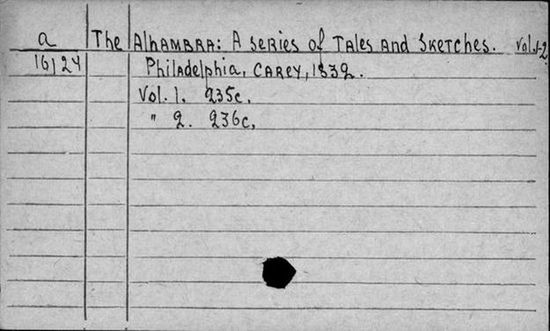 a The Alhambra: A series of Tales and Sketches. Vol. 1-2.
16124 Philadelphia, Carey, 1832.
Vol. 1. 235c.
" 2. 236c.